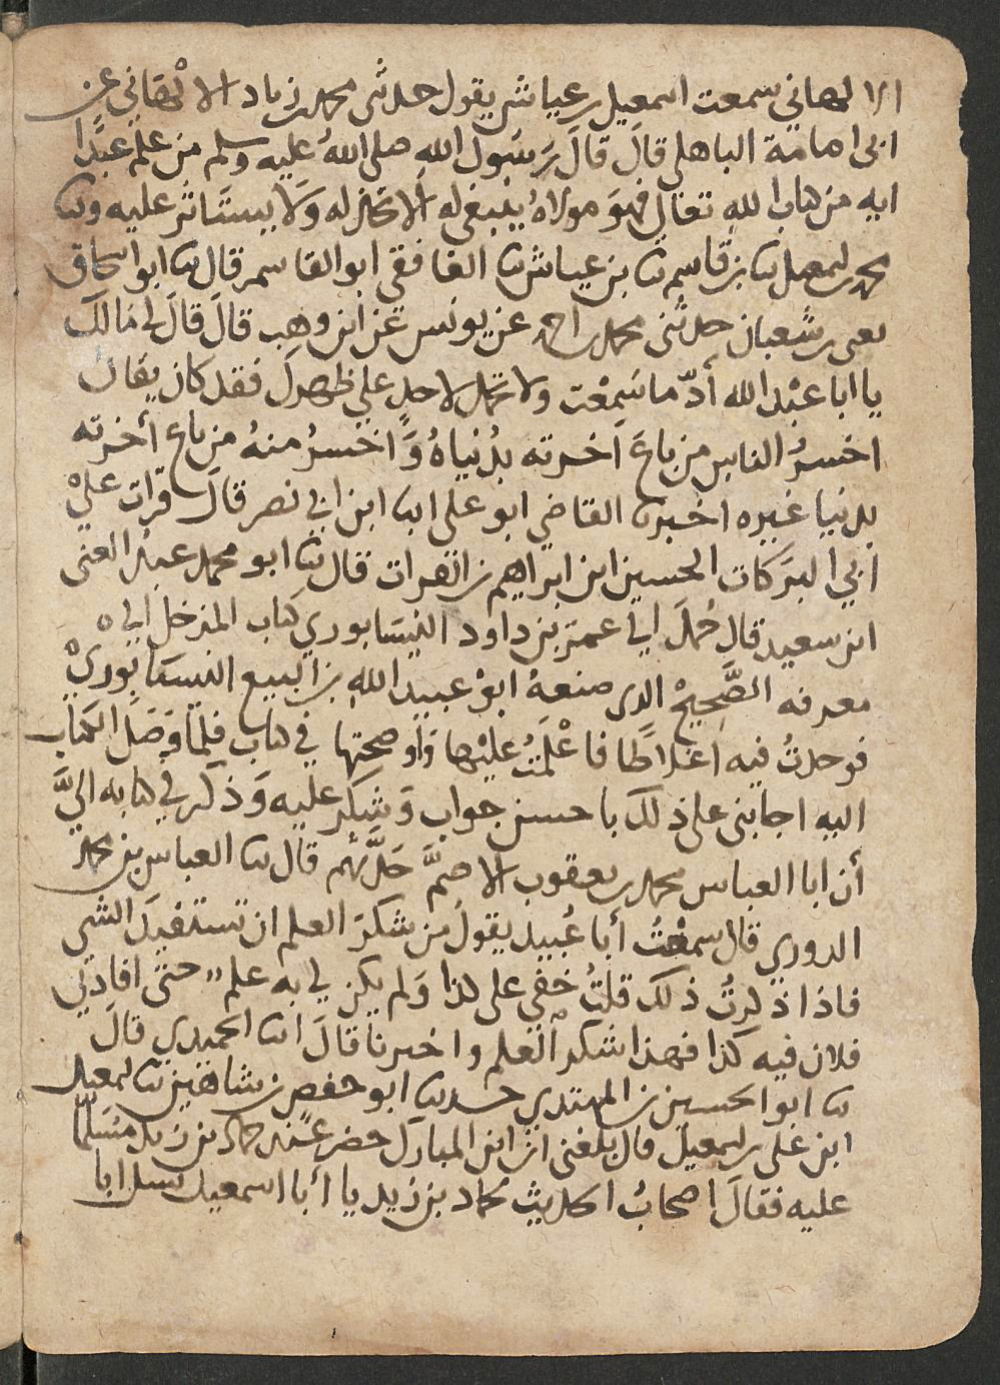 الالهاني سمعت اسمعيل بن عياش يقول حدثني محمد بن زياد الالهاني عن
ابى امامة الباهلى قالَ قالَ رَسُول الله صلى اللهُ عليه وسلم من علم عبدًا
ايه من كتاب الله تعالى فهوَ مولاهُ ينبغى له ألا يخذله وَلا يستأثر عليه وثنا
محمد بن اسمعيل ثنا بن قاسم ثنا بن عياش ثنا الغافقي ابو القاسم قال ثنا ابو اسحاق
يعنى بن شعبان حدثنى محمد بن احمد عن يونس عن ابن وهب قالَ قالَ لى مالك
يا ابا عبْد الله أدّ ما سَمِعْت ولا تحمل لاحدٍ على ظهرك فقد كان يقال
اخسرُ الناس من باعَ آخرته بدُنياهُ وَاخسرُ منهُ من باع أخرته
بدنيا غيره اخبرنا القاضي ابو على ابنا ابن ابي نصر قالَ قرات على
أبي البرَكات الحسين ابن ابراهيم بن الفرات قال ثنا ابو محمد عبد الغنى
ابن سعيد قال حُمل الي عمر بن داود النيسَابوري كتاب المدخل الى
معرفه الصَّحِيحْ الذى صنعهُ ابوْ عبيد اللهِ بن البيع النيسَابوريْ
فوجدتُ فيه اغلاطًا فاعْلَمْتُ عليْها وَاوضحتها في كتاب فلما وَصَلَ الكتاب
اليه اجابنى على ذلك باحسن جواب وَشكر عليه وَذكر في كتابه الىَّ
أن ابا العباس محمد بن يعقوب الاصمَّ حَدَّثَهُم قال ثنا العباس بن محمد
الدوري قال سمعْتُ أبا عُبيد يقول من شكرَ العلم ان تستفيدَ الشي
فاذا ذكرتُ ذلك قلتُ خفي على كذا وَلم يكن لي به علم حتى افادني
فلان فيه كذا فهذا شكر العلم واخبرنا قالَ انا الحميدي قالَ
ثنا ابو الحسين بن المهتدي حدثنا ابو حفص بن شاهين ثنا اسمعيل
ابن على بن اسمعيل قال بلغنى ان ابن المبارك حضر عند حماد بن زيد مسَلّمًا
عليه فقالَ اصحابُ الحديث لحماد بن زيد يا أبا اسمعيل تسل ابا